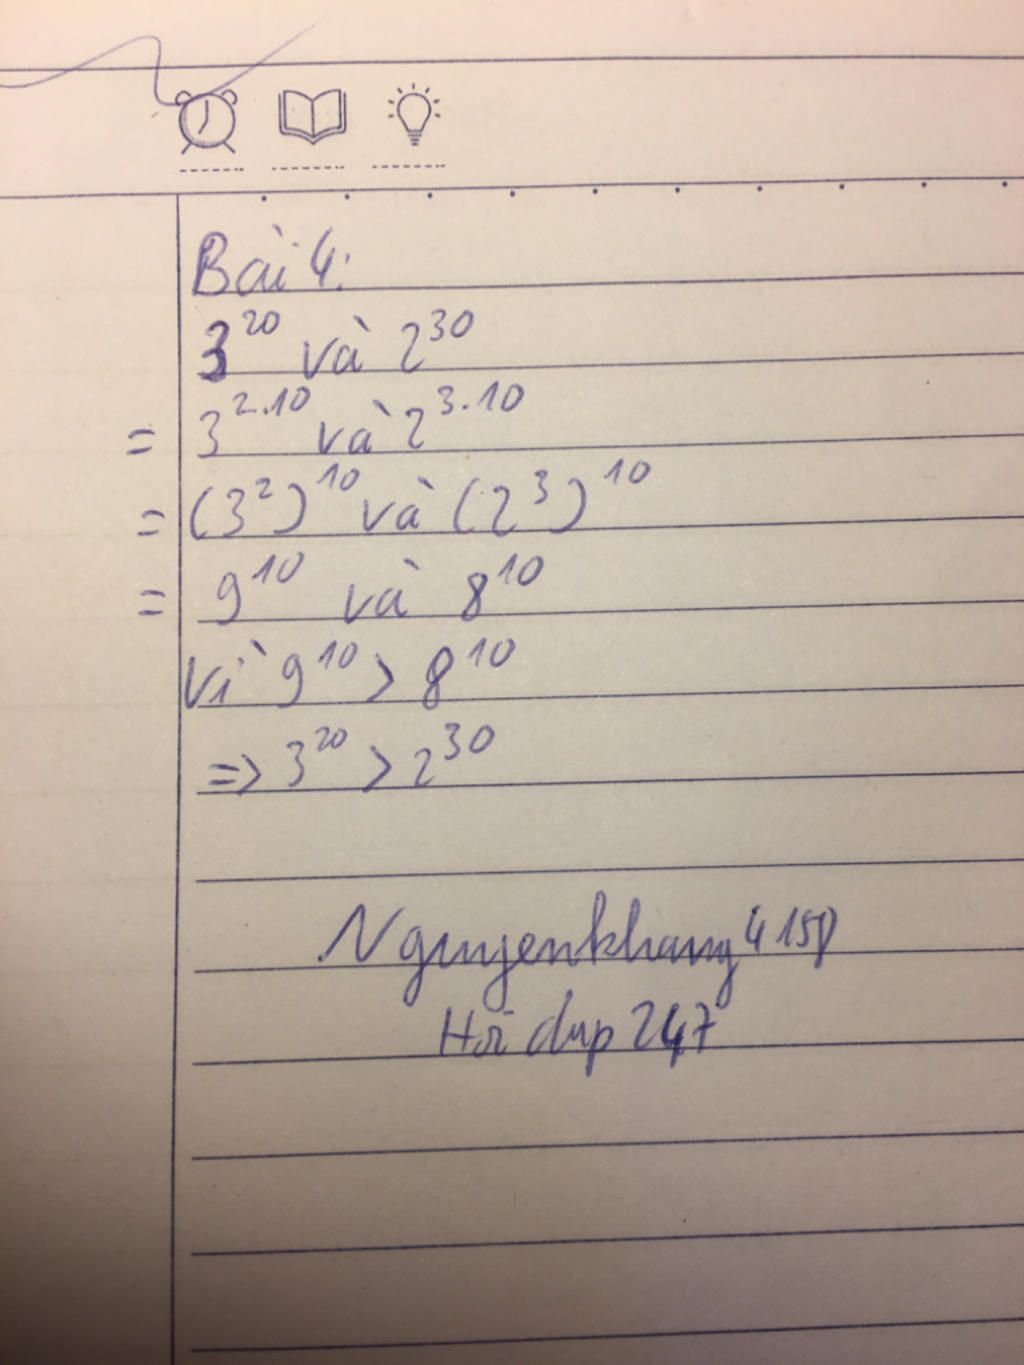 Bài 4:
3²⁰ và 2³⁰
= 3²·¹⁰ và 2³·¹⁰
= (3²)¹⁰ và (2³)¹⁰
= 9¹⁰ và 8¹⁰
Vì 9¹⁰ > 8¹⁰
=> 3²⁰ > 2³⁰
Nguyenkhang
247